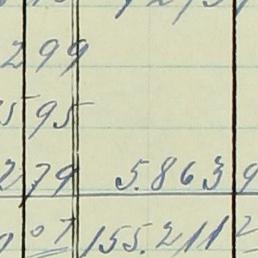 299
595
279 5.863 9
07 155.211 2